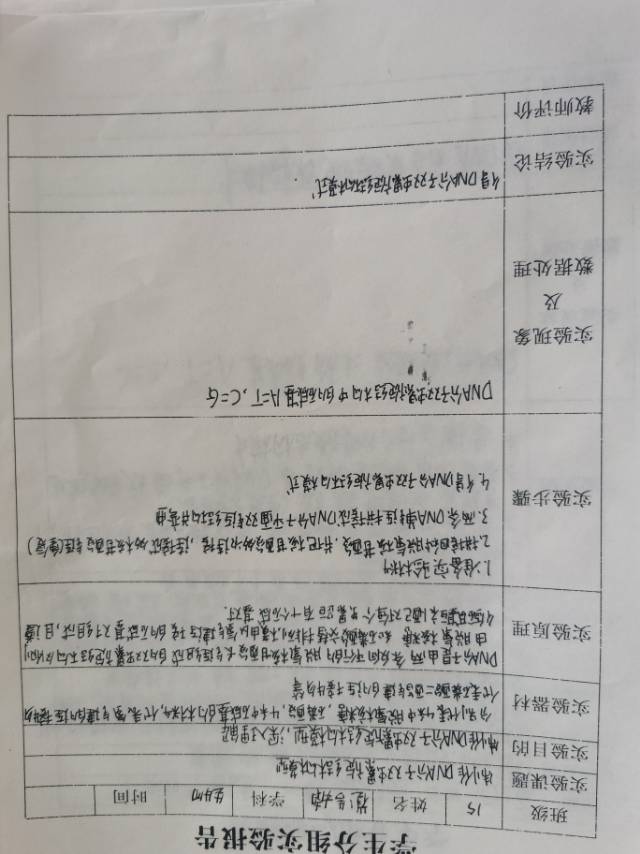 学生分组实验报告
班级 15 姓名 学科 生物 时间
实验课题 制作DNA分子双螺旋结构模型
实验目的 制作DNA分子双螺旋结构模型,深入理解
实验器材 分别代表4种脱氧核糖,磷酸,4种不同碱基的材料,代表氢键的连接物
代表磷酸二酯键的连接物等
实验原理 DNA分子是由两条反向平行的脱氧核苷酸长链组成的双螺旋结构分别
由脱氧核糖和磷酸交替排列和通过氢键连接的碱基对组成,且遵
循碱基互补配对 每个螺距有十个碱基对.
实验步骤 1.准备实验材料
2.拼接四种脱氧核苷酸,并把核苷酸依次连接,连接成多核苷酸链(
3.两条DNA单链拼接成DNA分子平面双链结构并弯曲
4.得DNA分子双螺旋结构模式
实验现象 DNA分子双螺旋结构中的碱基A=T,C=G
及
数据处理
实验结论 得DNA分子双螺旋结构模式
教师评价